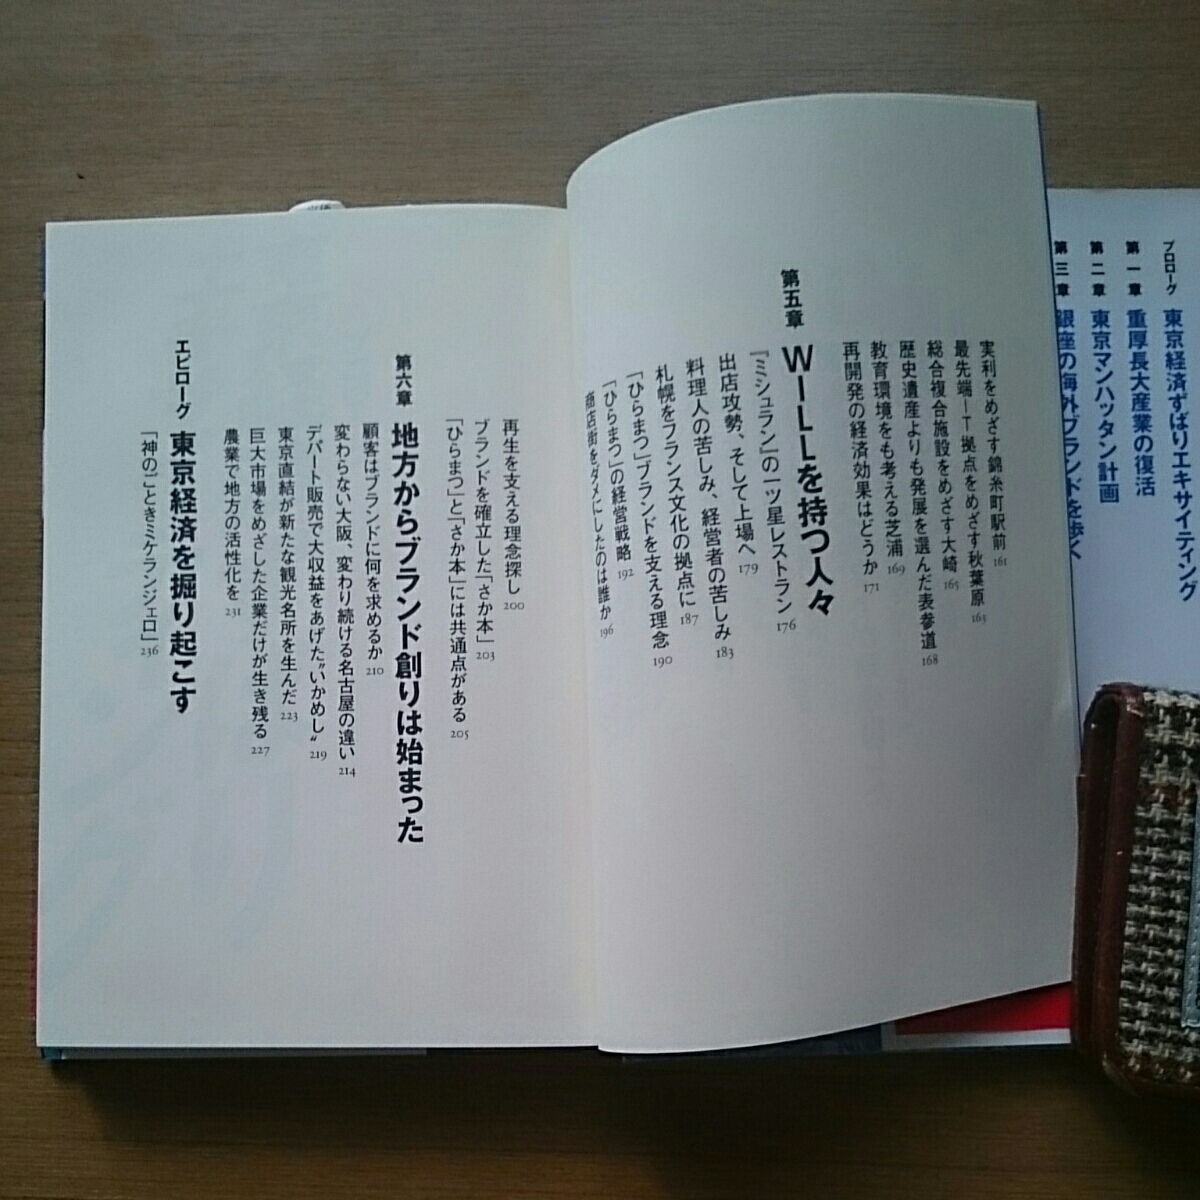 プロローグ 東京経済ずばりエキサイティング
第一章 重厚長大産業の復活
第二章 東京マンハッタン計画
第三章 銀座の海外ブランドを歩く
実利をめざす錦糸町駅前 161
最先端IT拠点をめざす秋葉原 163
総合複合施設をめざす大崎 165
歴史遺産よりも発展を選んだ表参道 168
教育環境をも考える芝浦 169
再開発の経済効果はどうか 171
第五章 WILLを持つ人々
『ミシュラン』の一ツ星レストラン 176
出店攻勢、そして上場へ 179
料理人の苦しみ、経営者の苦しみ 183
札幌をフランス文化の拠点に 187
「ひらまつ」ブランドを支える理念 190
「ひらまつ」の経営戦略 192
商店街をダメにしたのは誰か 196
再生を支える理念探し 200
ブランドを確立した「さか本」 203
「ひらまつ」と「さか本」には共通点がある 205
第六章 地方からブランド創りは始まった
顧客はブランドに何を求めるか 210
変わらない大阪、変わり続ける名古屋の違い 214
デパート販売で大収益をあげた〝いかめし〟 219
東京直結が新たな観光名所を生んだ 223
巨大市場をめざした企業だけが生き残る 227
農業で地方の活性化を 231
エピローグ 東京経済を掘り起こす
「神のごときミケランジェロ」 236